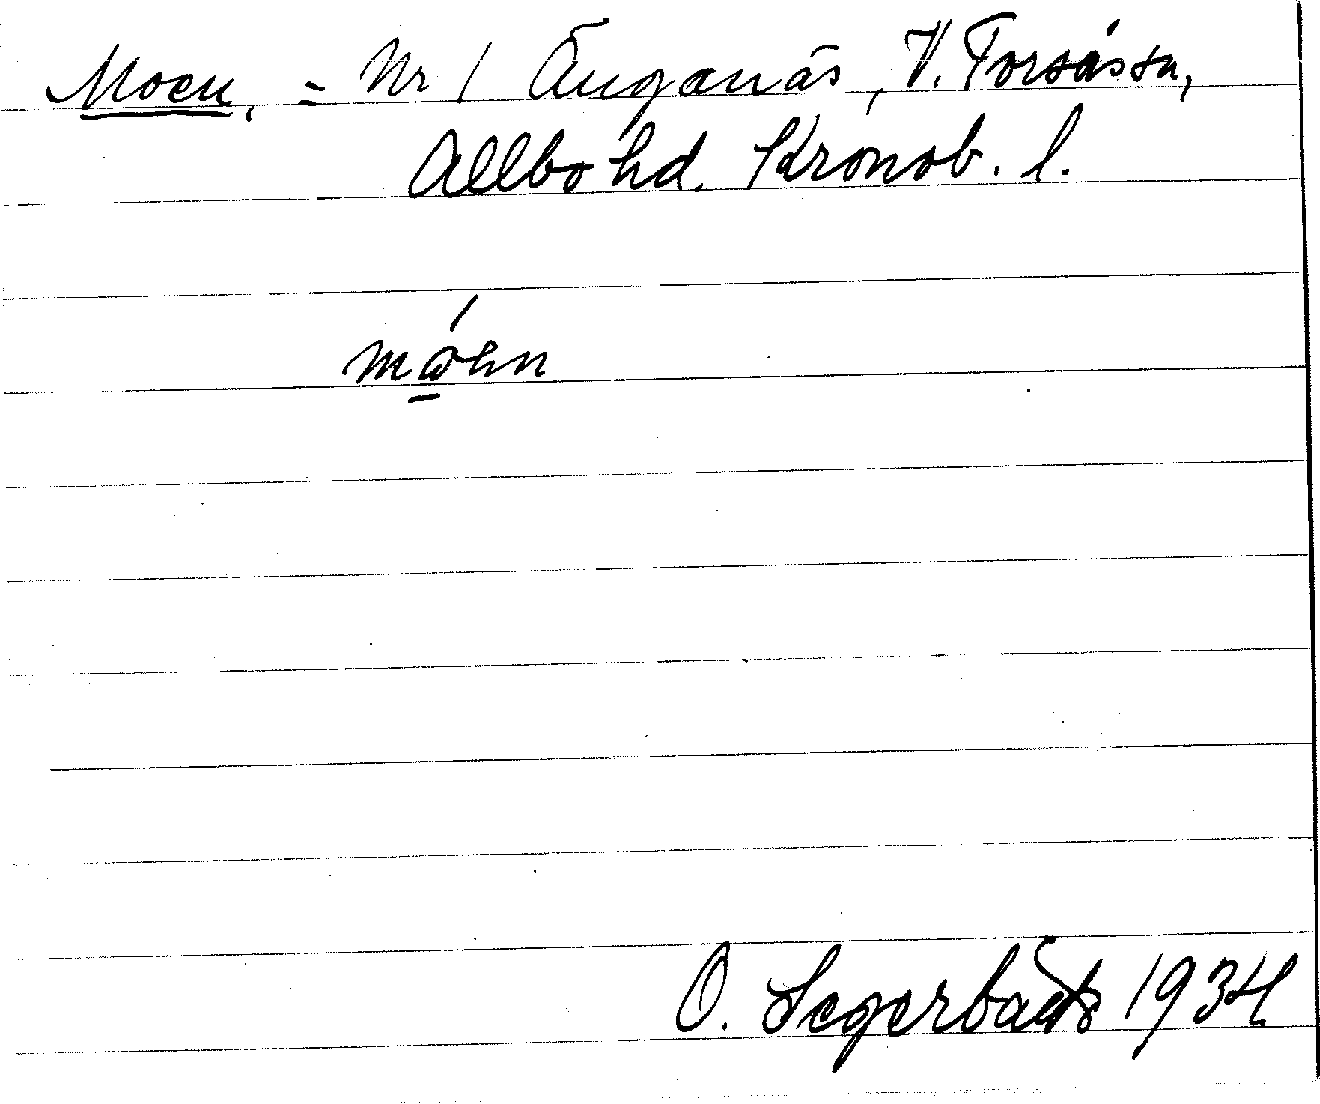 Moen, = Nr 1 Änganäs, V. Torsås sn,
Allbo hd. Kronob. l.
O. Segerbäck 1934